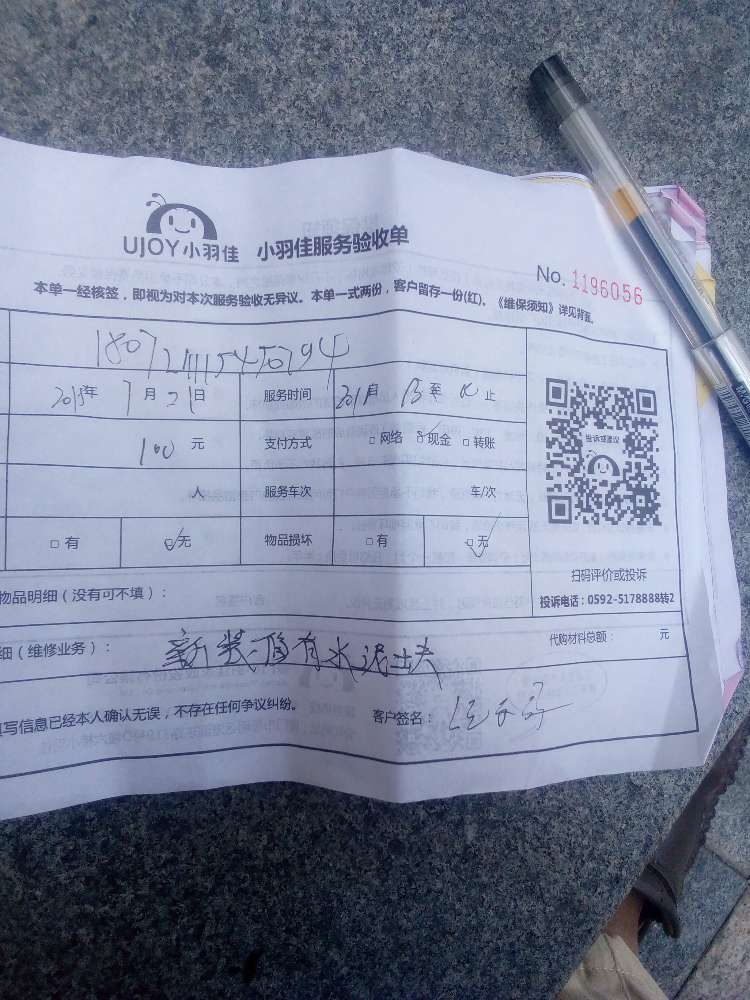 UJOY小羽佳 小羽佳服务验收单
No. 1196056
本单一经核签，即视为对本次服务验收无异议。本单一式两份，客户留存一份(红)。《维保须知》详见背面。
2018年 7月21日 服务时间 月 至 止
100 元 支付方式 □网络 ☑现金 □转账
投诉或建议
人 服务车次 车/次
□有 ☑无 物品损坏 □有 ☑无
扫码评价或投诉
物品明细（没有可不填）：
投诉电话：0592-5178888转2
代购材料总额： 元
细（维修业务）： 新装修有水泥
写信息已经本人确认无误，不存在任何争议纠纷。 客户签名：